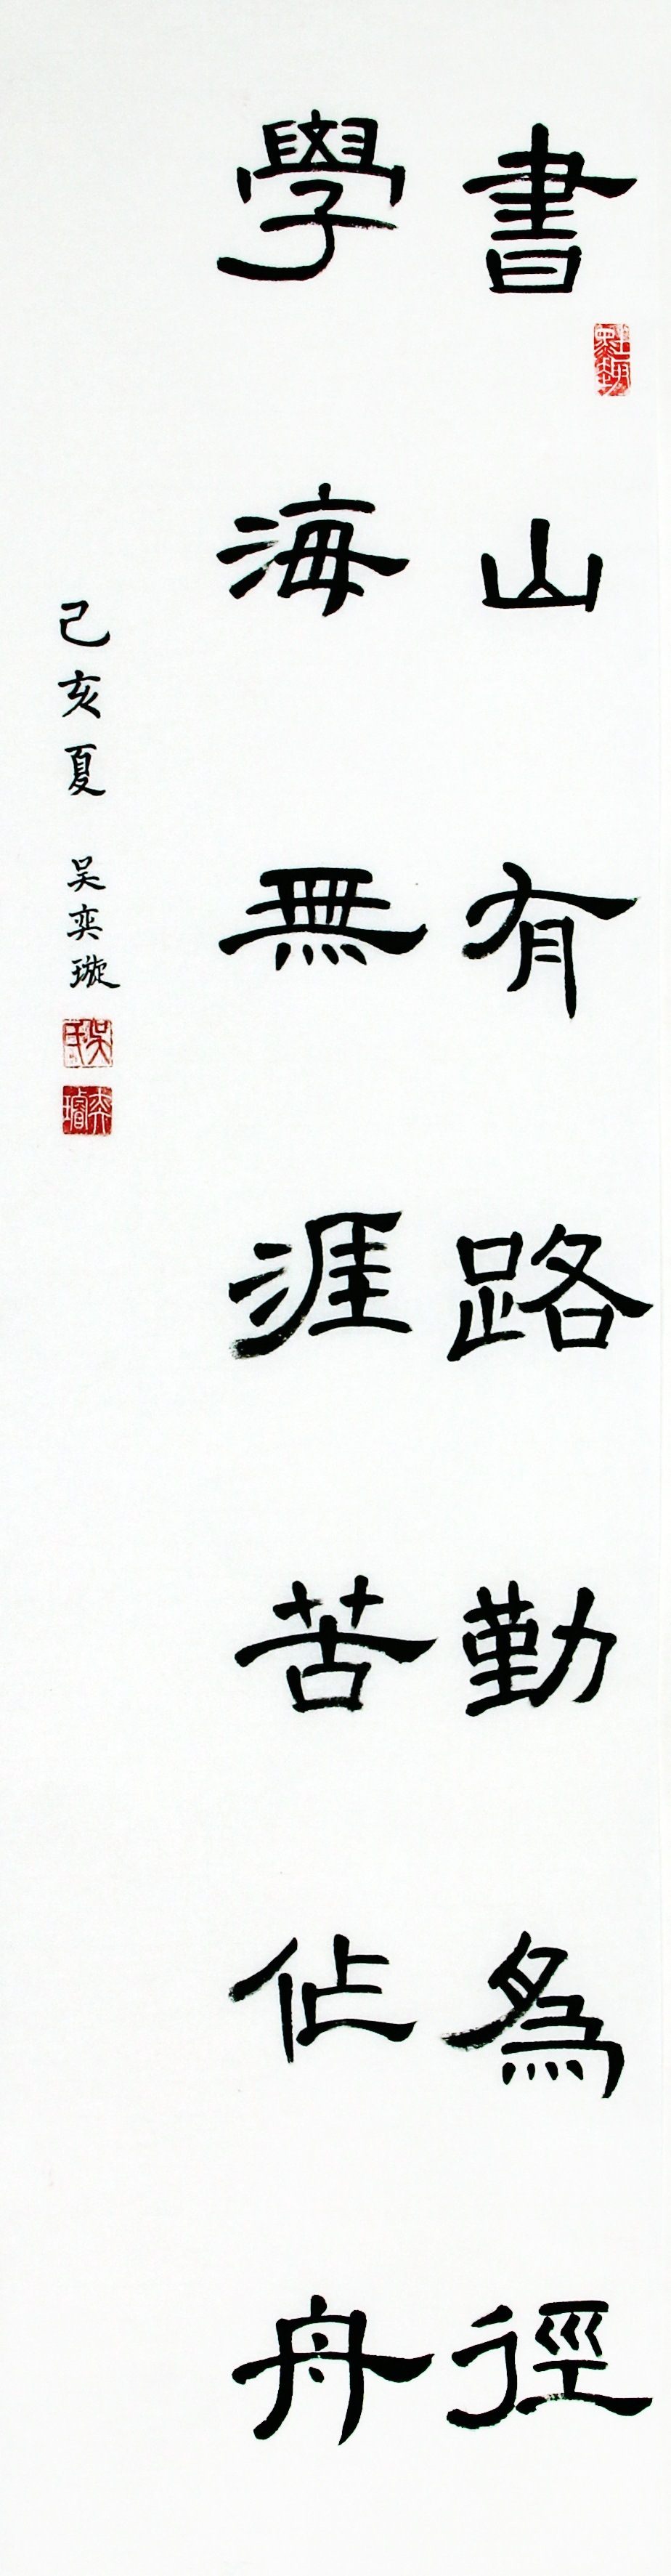 書山有路勤為徑
學海無涯苦作舟
己亥夏 吴奕璇
吴氏